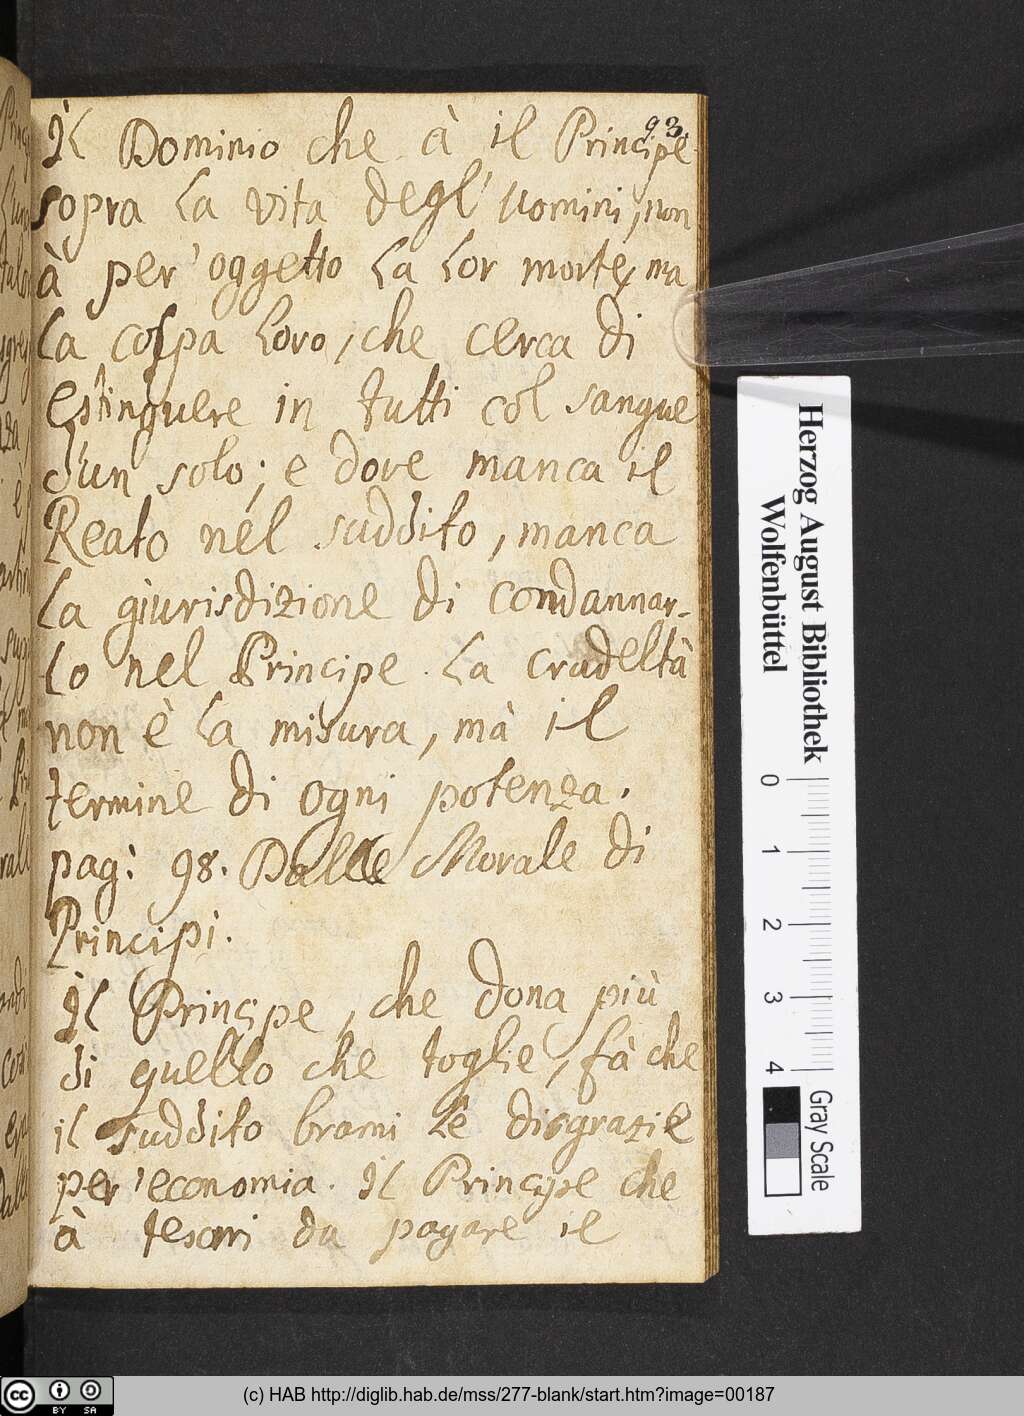 93.
Il Dominio che à il Principe
sopra la vita degl' Uomini, non
à per' oggetto la lor morte, ma
la colpa loro, che cerca di
estinguere in tutti col sangue
d'un solo; e dove manca il
Reato nel suddito, manca
la giurisdizione di condannar-
lo nel Principe. La crudeltà
non è la misura, mà il
termine di ogni potenza.
pag: 98. Dalle Morale di
Principi.
Il Principe, che dona più
di quello che toglie, fà che
il suddito brami le disgrazie
per' economia. Il Principe che
à tesori da pagare il
Herzog August Bibliothek
Wolfenbüttel
0 1 2 3 4
Gray Scale
cc BY SA
(c) HAB http://diglib.hab.de/mss/277-blank/start.htm?image=00187